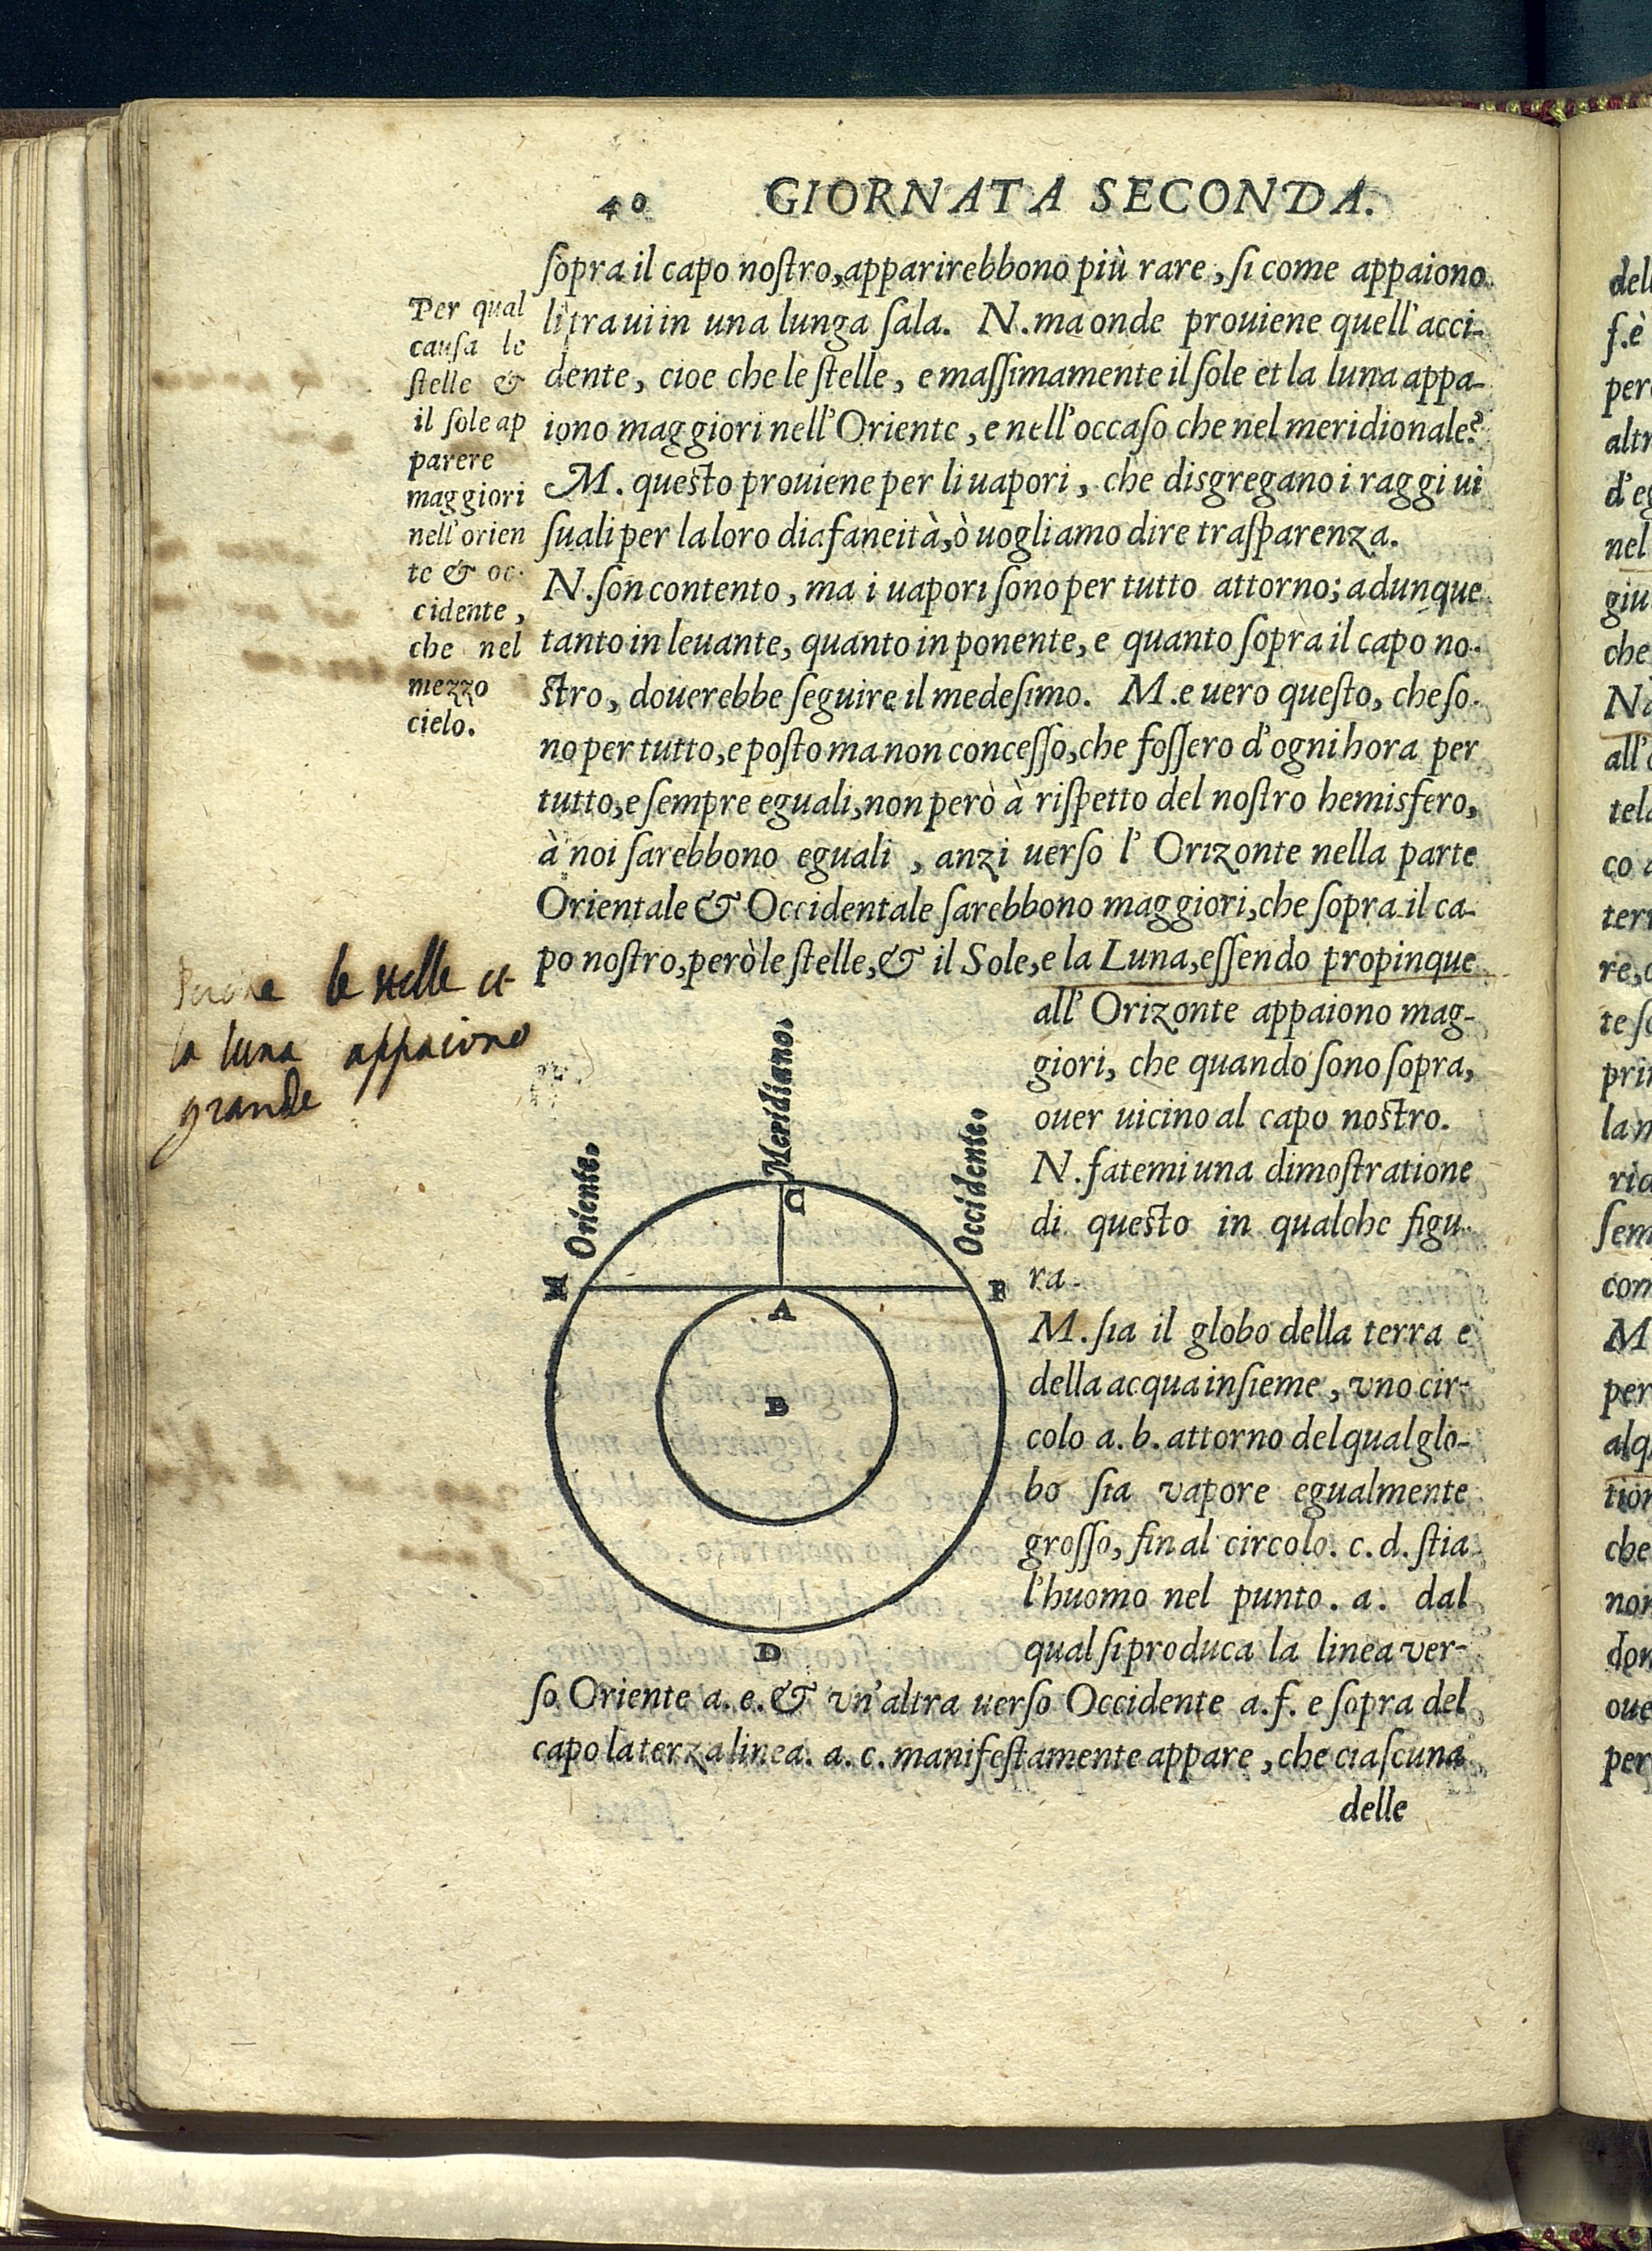 40 GIORNATA SECONDA.
ſopra il capo noſtro, apparirebbono più rare, ſi come appaiono
li traui in una lunga ſala. N. ma onde prouiene quell'acci-
dente, cioe che le ſtelle, e maſſimamente il ſole et la luna appa-
iono maggiori nell'Oriente, e nell'occaſo che nel meridionale?
M. queſto prouiene per li uapori, che disgregano i raggi ui
ſuali per la loro diafaneità, ò uogliamo dire traſparenza.
N. ſon contento, ma i uapori ſono per tutto attorno; adunque
tanto in leuante, quanto in ponente, e quanto ſopra il capo no-
ſtro, douerebbe ſeguire il medeſimo. M. e uero queſto, che ſo-
no per tutto, e poſto ma non conceſſo, che foſſero d'ogni hora per
tutto, e ſempre eguali, non però à riſpetto del noſtro hemisfero,
à noi ſarebbono eguali, anzi uerſo l'Orizonte nella parte
Orientale & Occidentale ſarebbono maggiori, che ſopra il ca-
po noſtro, però le ſtelle, & il Sole, e la Luna, eſſendo propinque
all'Orizonte appaiono mag-
giori, che quando ſono ſopra,
ouer uicino al capo noſtro.
N. fatemi una dimoſtratione
di queſto in qualche figu-
ra.
M. ſia il globo della terra e
della acqua inſieme, vno cir-
colo a. b. attorno del qual glo-
bo ſia vapore egualmente
groſſo, fin al circolo. c. d. ſtia
l'huomo nel punto. a. dal
qual ſi produca la linea ver-
ſo Oriente a. e. & vn'altra uerſo Occidente a. f. e ſopra del
capo la terza linea. a. c. manifeſtamente appare, che ciaſcuna
delle
Per qual
cauſa le
ſtelle &
il ſole ap
parere
maggiori
nell'orien
te & oc-
cidente,
che nel
mezzo
cielo.
le stelle et
la luna appaiono
grande
Oriente.
Meridiano.
Occidente.
C
A
B
D
F
dell
ſ. è
per
altr
d'eg
nel
giu
che
all'
tela
co
terr
re,
te ſo
prin
la
ria
ſem
com
M
per
alq
tion
che
non
don
oue
per